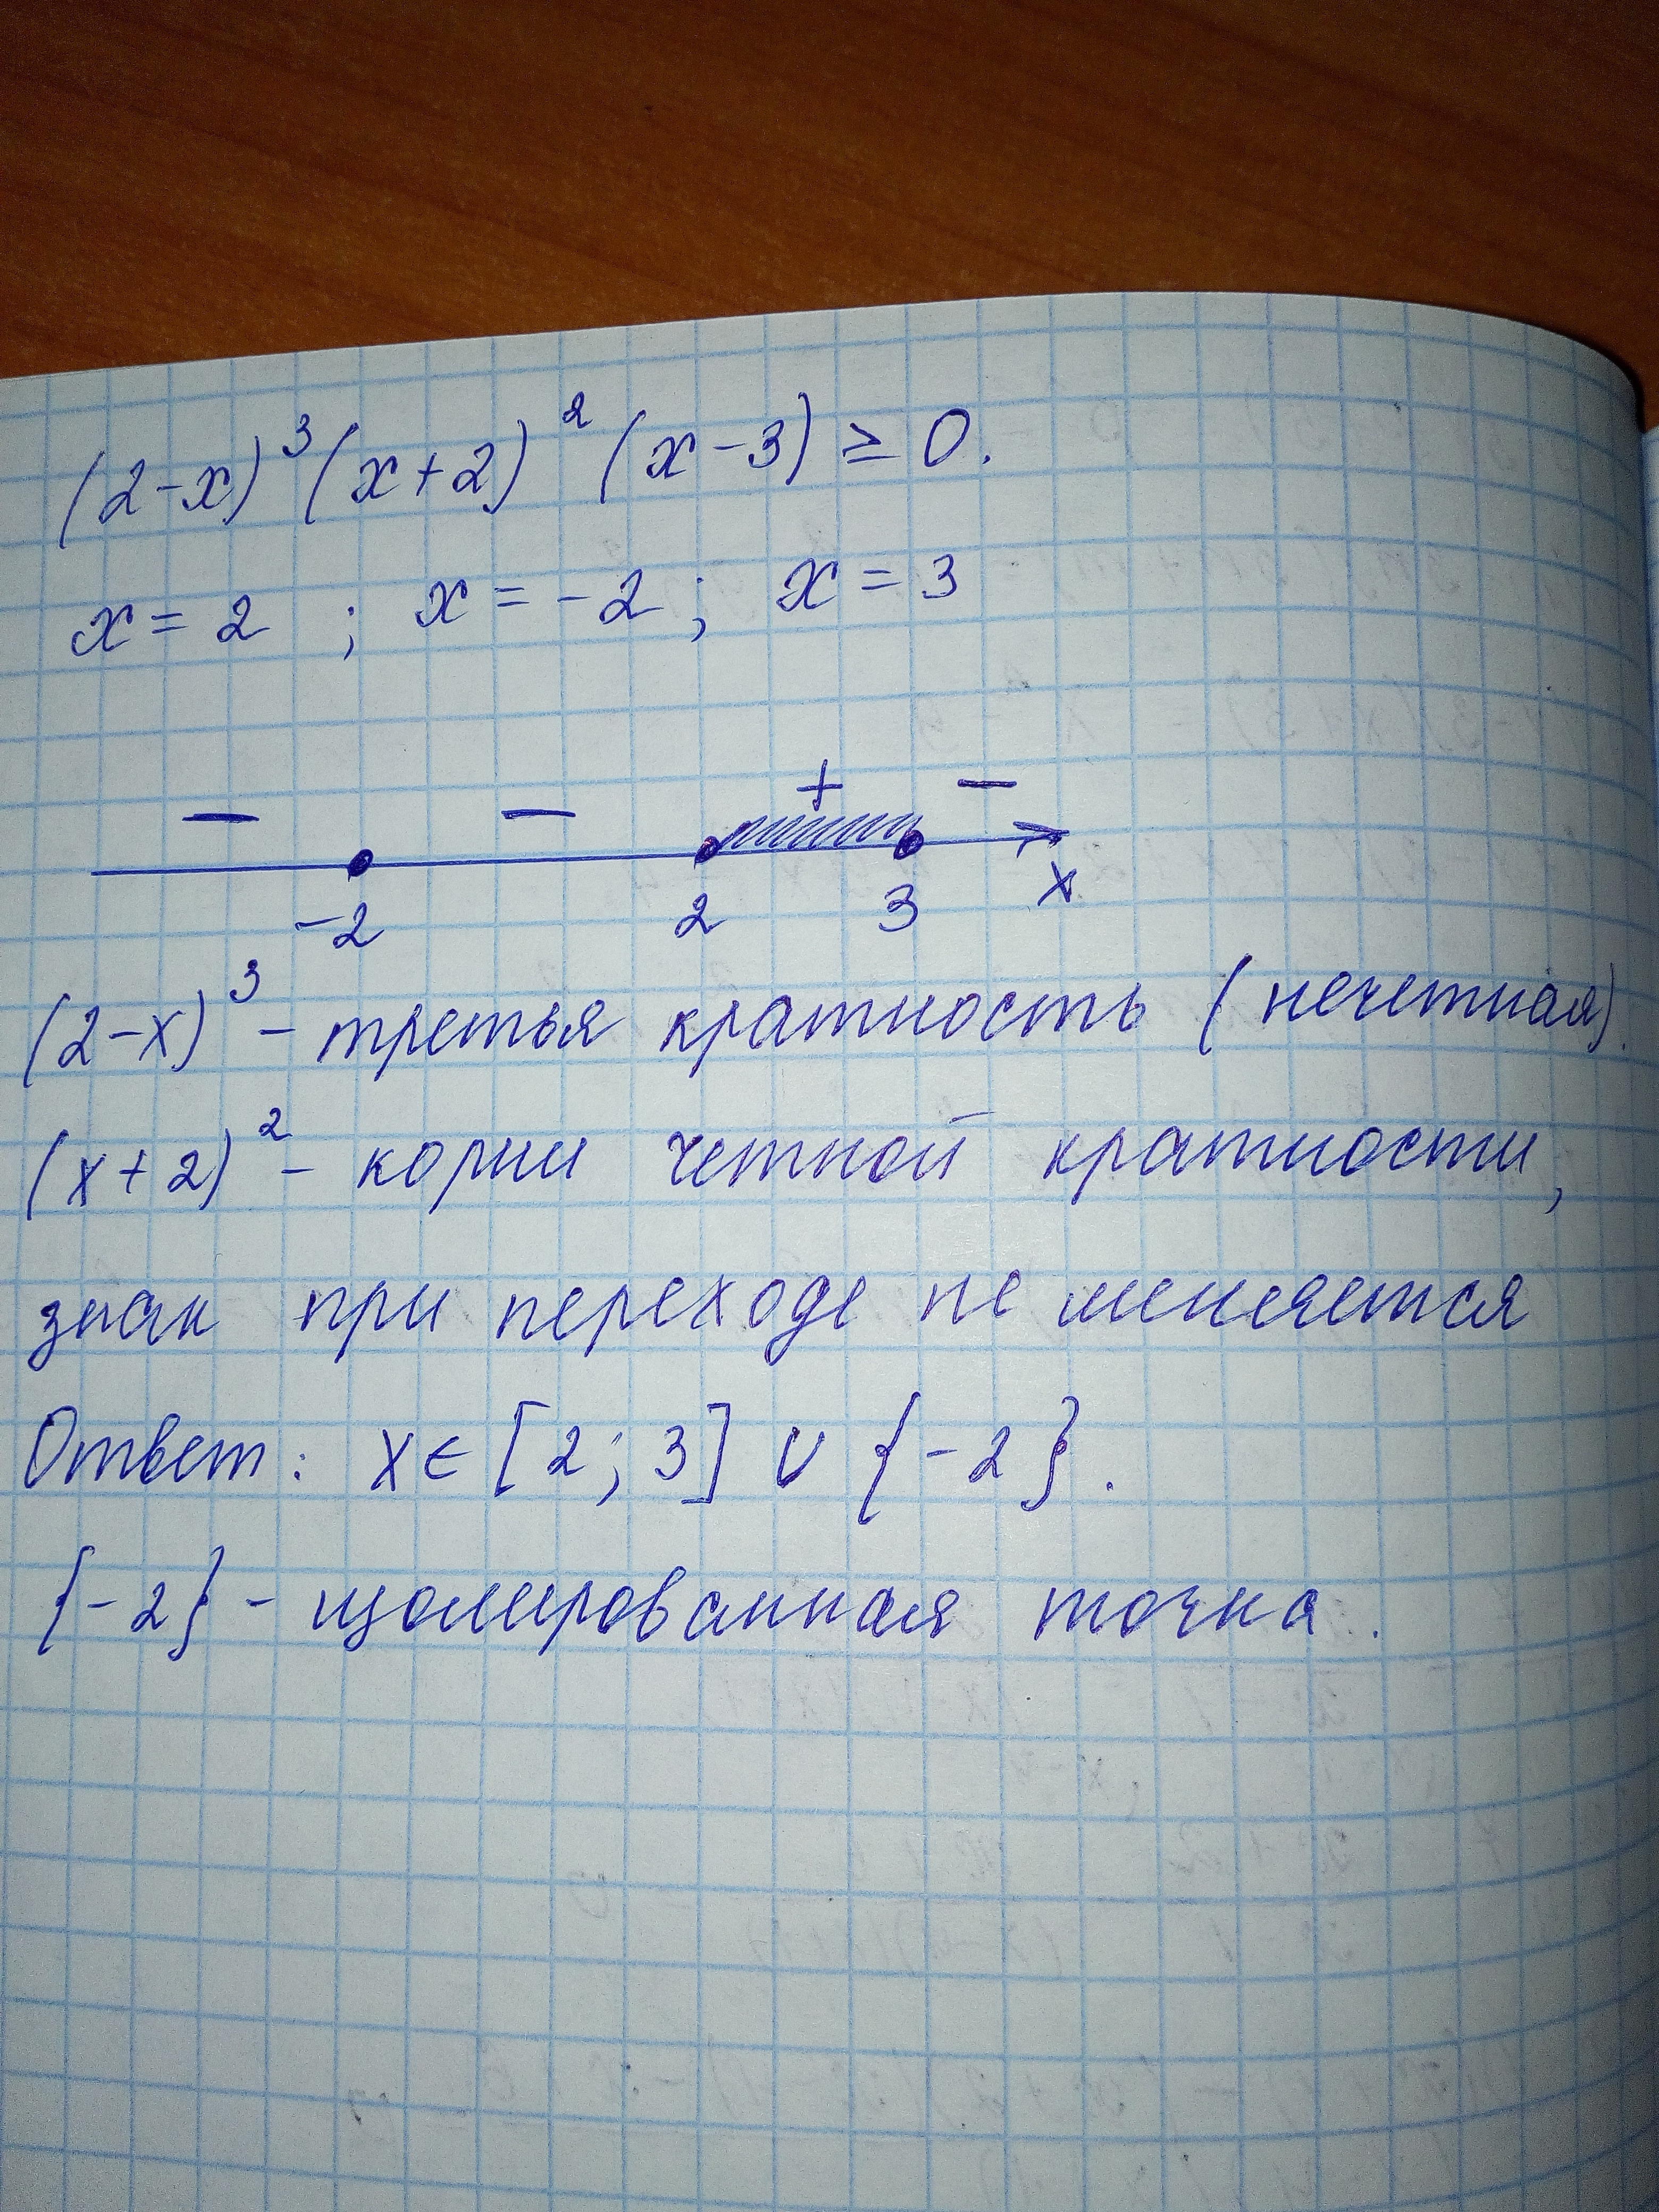 (2-x)³(x+2)²(x-3) ≥ 0.
x = 2 ; x = -2 ; x = 3
— — + —
-2 2 3 x
(2-x)³ - третья кратность (нечетная).
(x+2)² - корни четной кратности,
знак при переходе не меняется
Ответ: x∈[2; 3] ∪ {-2}.
{-2} - изолированная точка.